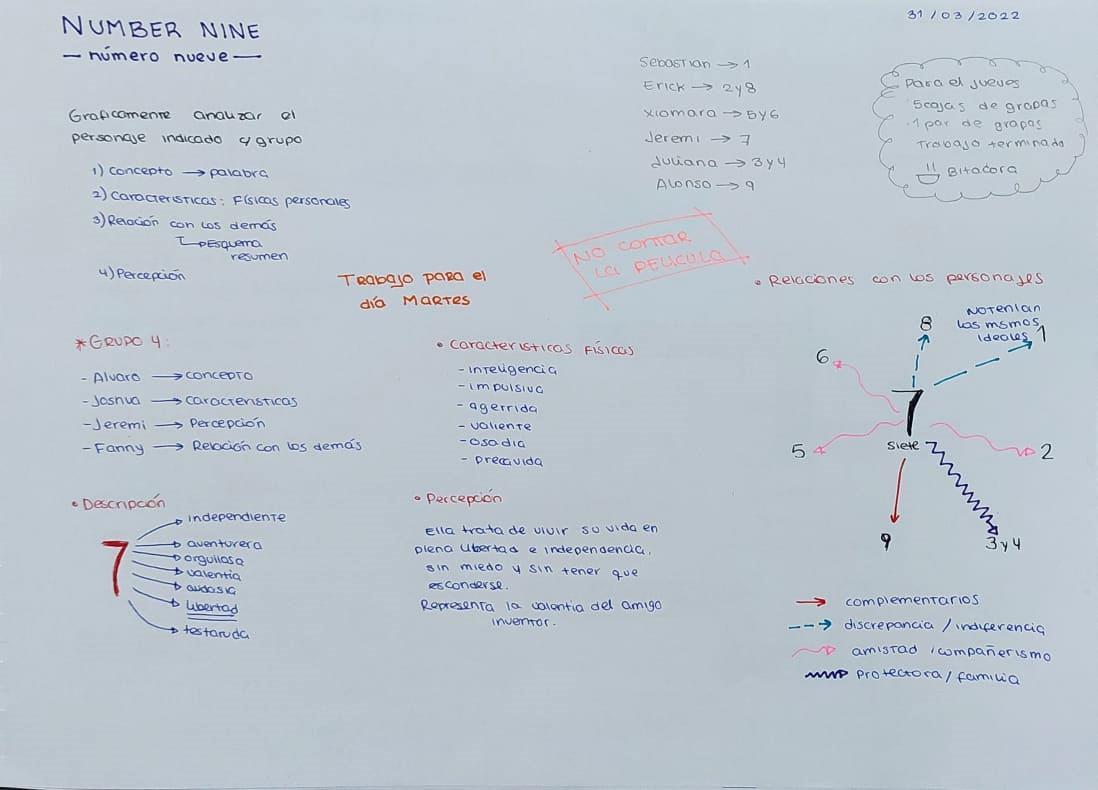 NUMBER NINE
— número nueve —
31/03/2022
Graficamente analizar el
personaje indicado c/ grupo
1) concepto → palabra
2) Características: Físicas personales
3) Relación con los demás
→ Esquema
resumen
4) Percepción
Trabajo para el
día Martes
Sebastian → 1
Erick → 2 y 8
Xiomara → 5 y 6
Jeremi → 7
Juliana → 3 y 4
Alonso → 9
Para el jueves
5 cajas de grapas
1 par de grapas
Trabajo terminado
Bitacora
NO CONTAR
La PELICULA
* GRUPO 4:
- Alvaro → concepto
- Joshua → características
- Jeremi → Percepción
- Fanny → Relación con los demás
• Características Físicas
- inteligencia
- impulsiva
- agerrida
- valiente
- osadia
- precavida
• Relaciones con los personajes
NO TENIAN
los msmos
ideales
8
1
6
7
siete
5
2
9
3 y 4
→ complementarios
--→ discrepancia / indiferencia
→ amistad / compañerismo
→ protectora / familia
• Descripción
7
→ independiente
→ aventurera
→ orgullosa
→ valentia
→ audasia
→ libertad
→ testaruda
• Percepción
Ella trata de vivir su vida en
plena libertad e independencia,
sin miedo y sin tener que
esconderse.
Representa la valentia del amigo
inventor.